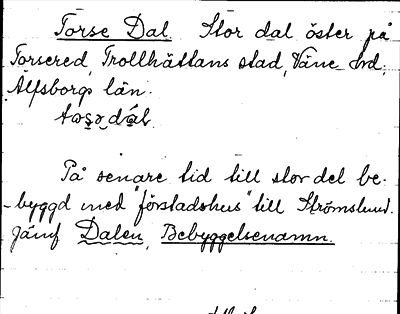 Torse Dal Stor dal öster på
Torsered, Trollhättans stad, Väne hd,
Älfsborgs län.
På senare tid till stor del be-
byggd med "förstadshus" till Strömslund.
Jämf Dalen, Bebyggelsenamn.